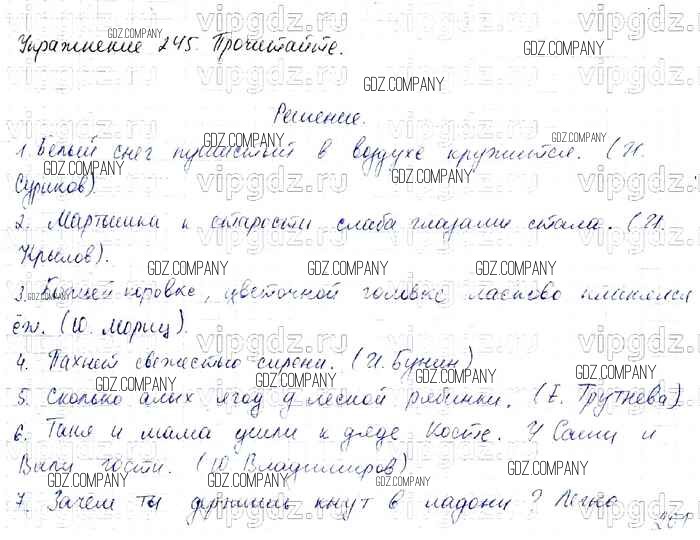 Упражнение 245. Прочитайте.
Решение.
1. Белый снег пушистый в воздухе кружится. (И.
Суриков).
2. Мартышка к старости слаба глазами стала. (И.
Крылов).
3. Божьей коровке, цветочной головке ласково кланялся
ёж. (Ю. Мориц).
4. Пахнет свежестью сирени. (И. Бунин)
5. Сколько алых ягод у лесной рябинки. (Е. Трутнева)
6. Таня и мама ушли к дяде Косте. У Саши и
Вали гости. (Ю. Владимиров)
7. Зачем ты держишь кнут в ладони? Легка